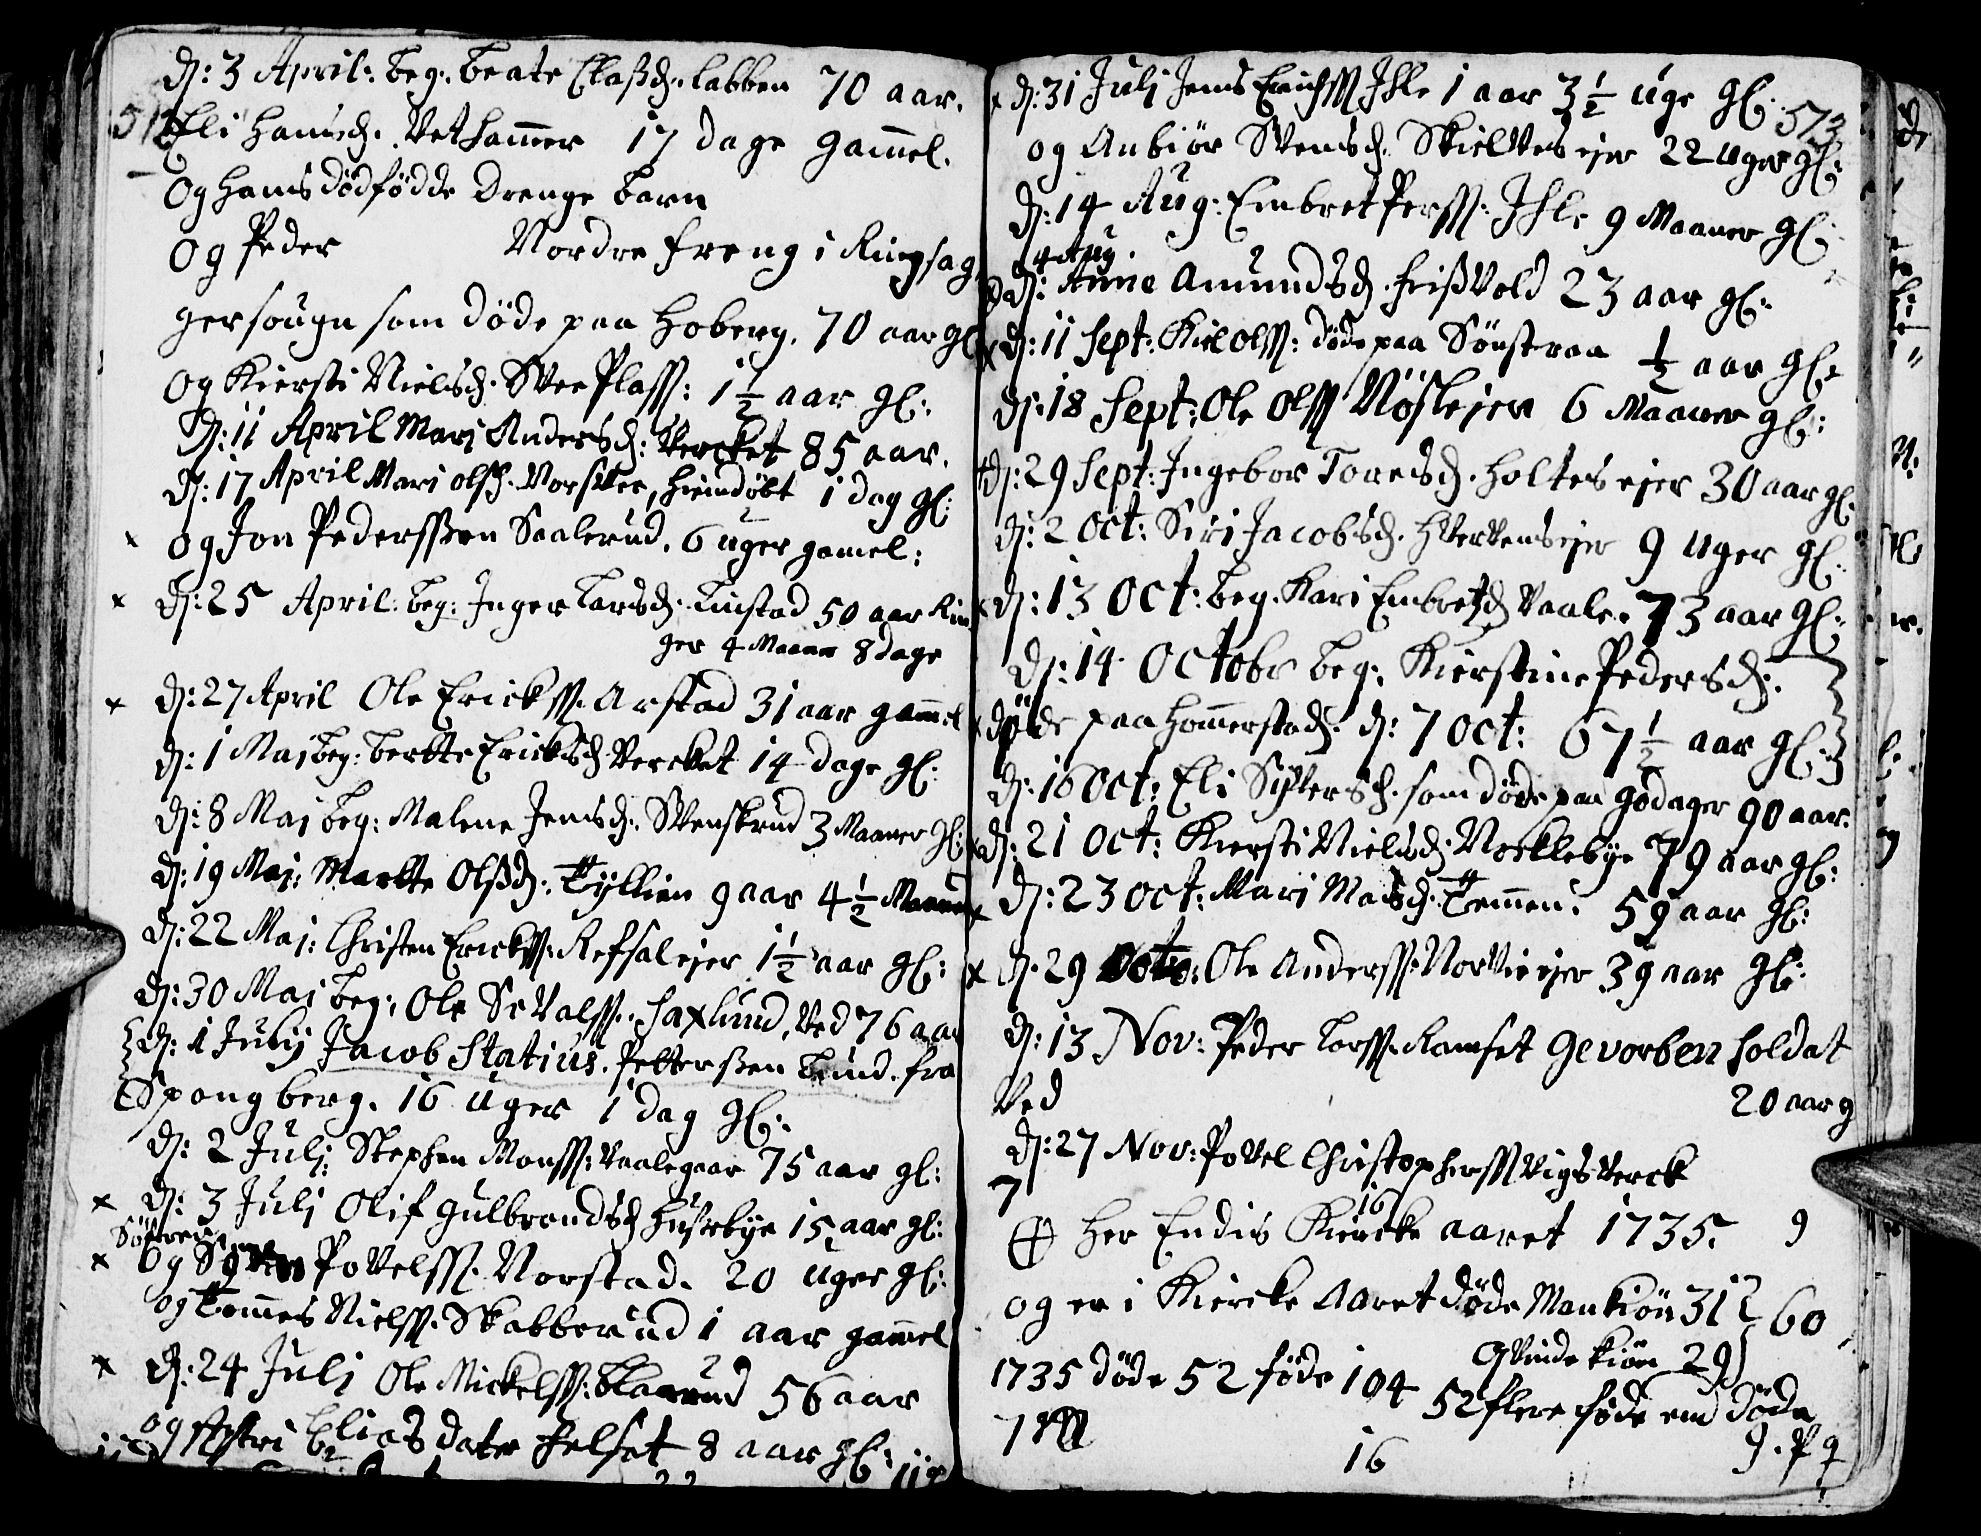 D: 3 April: beg: Beate Claßd. Labben 70 aar.
Eli Hansd. Vethammer 17 dage gammel.
Og Hans dødfødde Drenge barn
Og Peder Nordre Freng i Ringsag
gersougn som døde paa Hoberg. 70 aar gl
Og Kiersti Nielsd. Svee Plass: 1½ aar gl:
D: 11 April Mari Andersd: Vercket 85 aar.
D: 17 April Mari Olsd. Norsvee, hiemdøbt 1 dag gl:
Og Jon Pederssøn Saalerud. 6 uger gamel:
D: 25 April: beg: Inger Larsd. Linstad 50 aar
ger 4 Maaner 8 dage
D: 27 April Ole Ericks. Arstad 31 aar gammel
D: 1 Maj beg: Berthe Ericksd Vercket 14 dage gl:
D: 8 Maj beg: Malene Jensd. Svenskrud 3 Maaner gl:
D: 19 Maj: Marthe Olsd. Tyllien 9 aar 4½ Maaned
D: 22 Maj: Christen Ericks. Refsalejer 1½ aar gl:
D: 30 Maj beg: Ole Sivals. Saxlund, Ved 76 aar
D: 1 Julij Jacob Statius. Pettersen Lund. fra
Spongberg. 16 uger 1 dag gl:
D: 2 Julj: Stephen Monss: Vaalegaar 75 aar gl:
D: 3 Julj Olif Gulbrandsd Husebye 15 aar gl:
Og Povelss. Norstad. 20 uger gl:
og Tommes Nielss. Skabberud 1 aar gammel
D: 24 Julj Ole Mickelss: Blaarud 56 aar
og Astri Eliasdater Helset 8 aar gl:
D: 31 Julj Jens Erichss Ihle 1 aar 3½ uge gl: 573
og Anbiør Svensd. Skielvesejer 22 uger gl:
D: 14 Aug: Embret Perss: Ihle 9 Maaner gl:
4 Aug.
D: Anne Amundsd. Frisvold 23 aar gl:
D: 11 Sept: Kiel Olss: døde paa Sønstraa ½ aar gl:
D: 18 Sept: Ole Olss Nøslejer 6 Maaner gl:
D: 29 Sept: Ingebor Toresd. Holtesejer 30 aar gl:
D: 2 Oct: Siri Jacobsd. Hvervensejer 9 uger gl:
D: 13 Oct: beg. Kari Embretsd Vaale. 73 aar gl:
D: 14 Octobr beg: Kierstine Pedersd:.
døde paa Hommerstad. d: 7 Oct: 67½ aar gl:
D: 16 Oct: Eli Syversd. som døde paa Godager 90 aar.
D: 21 Oct: Kiersti Nielsd. Nocklebye 79 aar gl:
D: 23 Oct: Mari Madsd. Temmen. 59 aar gl:
D. 29 Octo: Ole Anderss: Norvieejer 39 aar gl:
D: 13 Nov: Peder Larss. Ramset Gevorben Soldat
Ved 20 aar g
D: 27 Nov: Povel Christopherss Vigsverck
7 16
Her Endis Kiercke aaret 1735. 9
og er i Kiercke Aaret døde Mankiøn 31 60
Qvinde kiøn 29
1735 døde 52 føde 104 52 flere føde end døde
16